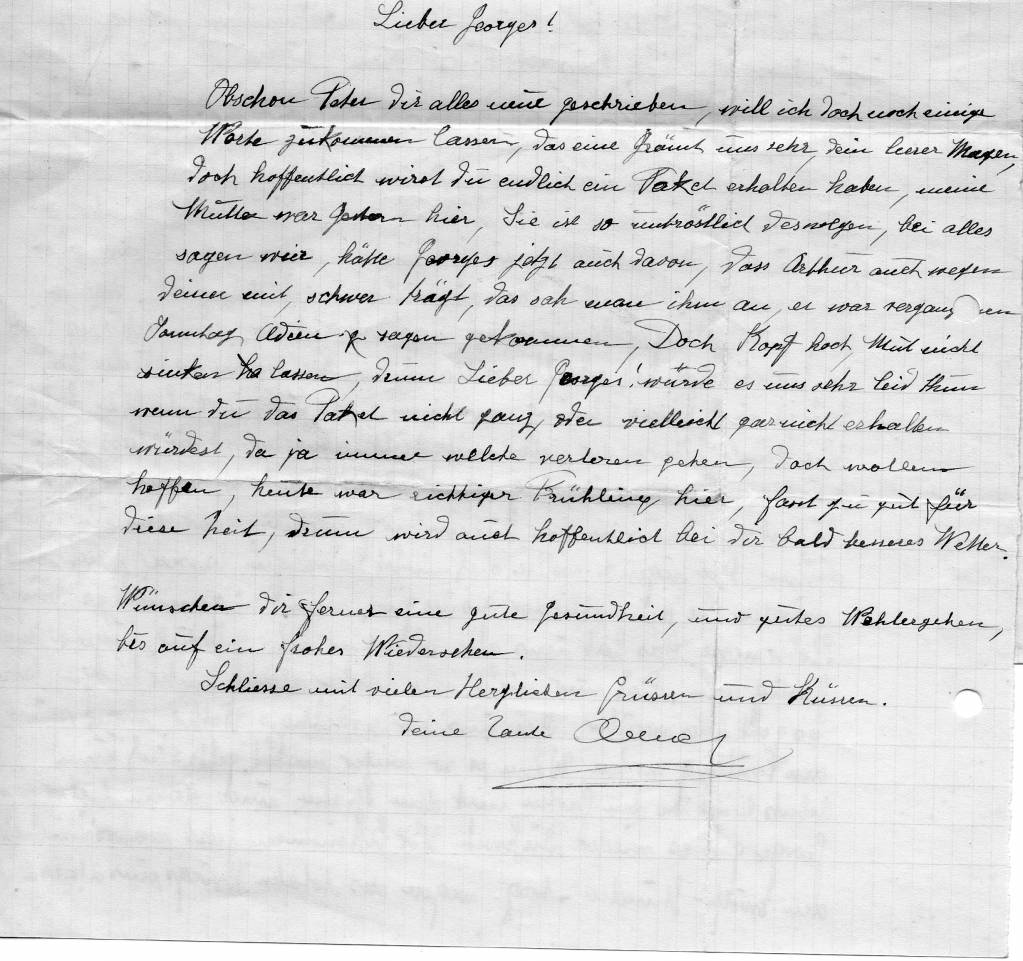 Lieber Georges!
Obschon Peter dir alles neue geschrieben, will ich doch noch einige
Worte zukommen lassen, das eine grämt uns sehr, dein leerer Magen,
doch hoffentlich wirst du endlich ein Paket erhalten haben, meine
Mutter war gestern hier, Sie ist so untröstlich deswegen, bei alles
sagen wir, hätte Georges jetzt auch davon, dass Arthur auch wegen
deiner mit, schwer trägt, das sah man ihm an, er war vergangenen
Sonntag Adieu z sagen gekommen, Doch Kopf hoch, Mut nicht
sinken lassen, drum Lieber Georges! würde es uns sehr leid thun
wenn du das Paket nicht ganz, oder vielleicht gar nicht erhalten
würdest, da ja immer welche verloren gehen, doch wollen
hoffen, heute war richtiger Frühling hier, fast zu gut für
diese Zeit, drum wird auch hoffentlich bei dir bald besseres Wetter.
Wünschen dir ferner eine gute Gesundheit, und gutes Wohlergehen,
bis auf ein frohes Wiedersehen.
Schliesse mit vielen Herzlichen Grüssen und Küssen.
deine Tante